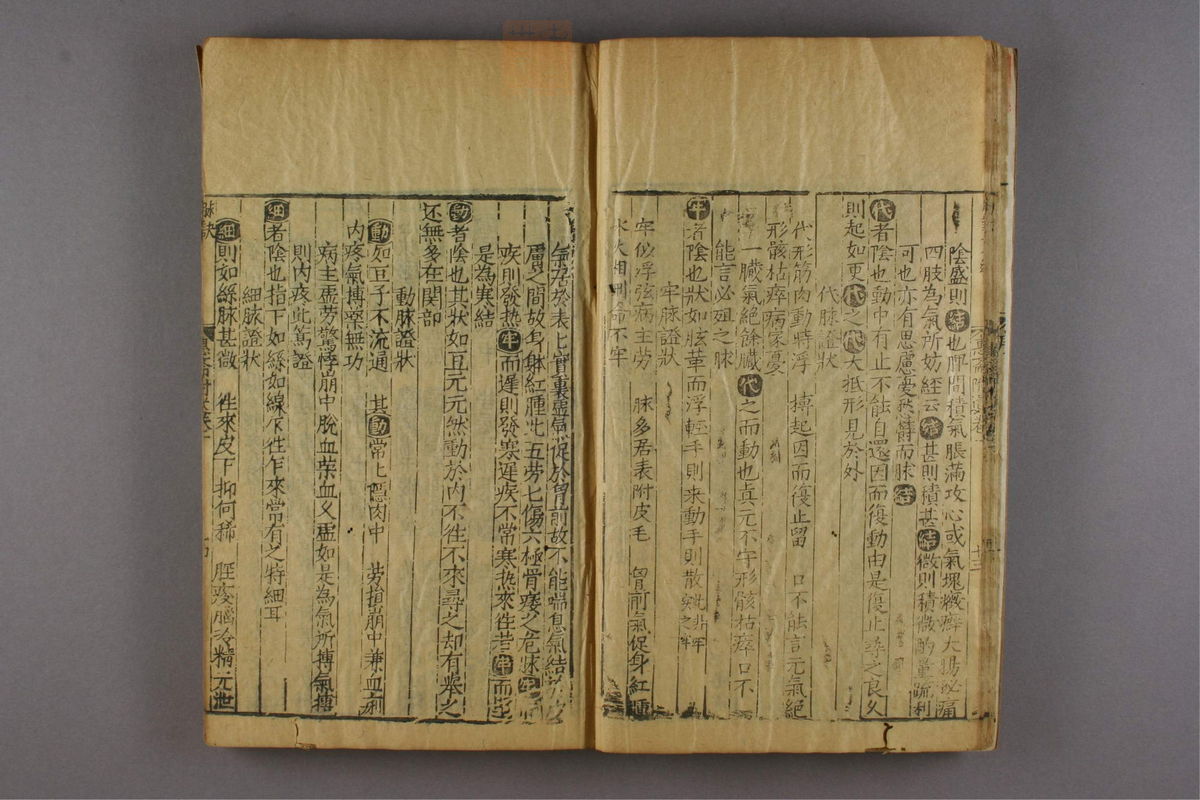 陰盛則結也脾間積氣脹滿攻心或氣塊癥癖大腸必痛
四肢為氣所妨經云結甚則積甚結微則積微酌量疏利
可也亦有思慮憂愁鬱而脉結
代者陰也動中有止不能自還因而復動由是復止尋之良久
則起如更代之代大抵形見於外
代脉證狀
代形筋肉動時浮 摶起因而復止留 口不能言元氣絕
形骸枯瘁病家憂
一臟氣絕餘臟代之而動也真元不守形骸枯瘁口不
能言必殂之脉
牢者陰也狀如弦革而浮輕手則来動手則散
牢脉證狀
牢似浮弦病主勞 脉多居表附皮毛 胷前氣促身紅腫
水火相刑命不牢
氣居於表上實裏虛氣促於胷前故不能喘息氣結於皮
膚之間故身躰紅腫此五勞七傷六極骨痿之危脉牢而
疾則發熱牢而遲則發寒遲疾不常寒熱來往若牢而
是為寒結
動者陰也其狀如豆兀兀然動於內不往不來尋之却有举之
还無多在関部
動脉證狀
動如豆子不流通 其動常上隱肉中 劳損崩中兼血痢
內疼氣搏藥無功
病主虛劳驚悸崩中脫血荣血乂虛如是為氣所搏氣搏
則內疼此篤證
細者陰也指下如絲如線乍往乍來常有之特細耳
細脉證狀
細則如絲脉甚微 往來皮下抑何稀 脛痠腦冷精元泄
脉訣